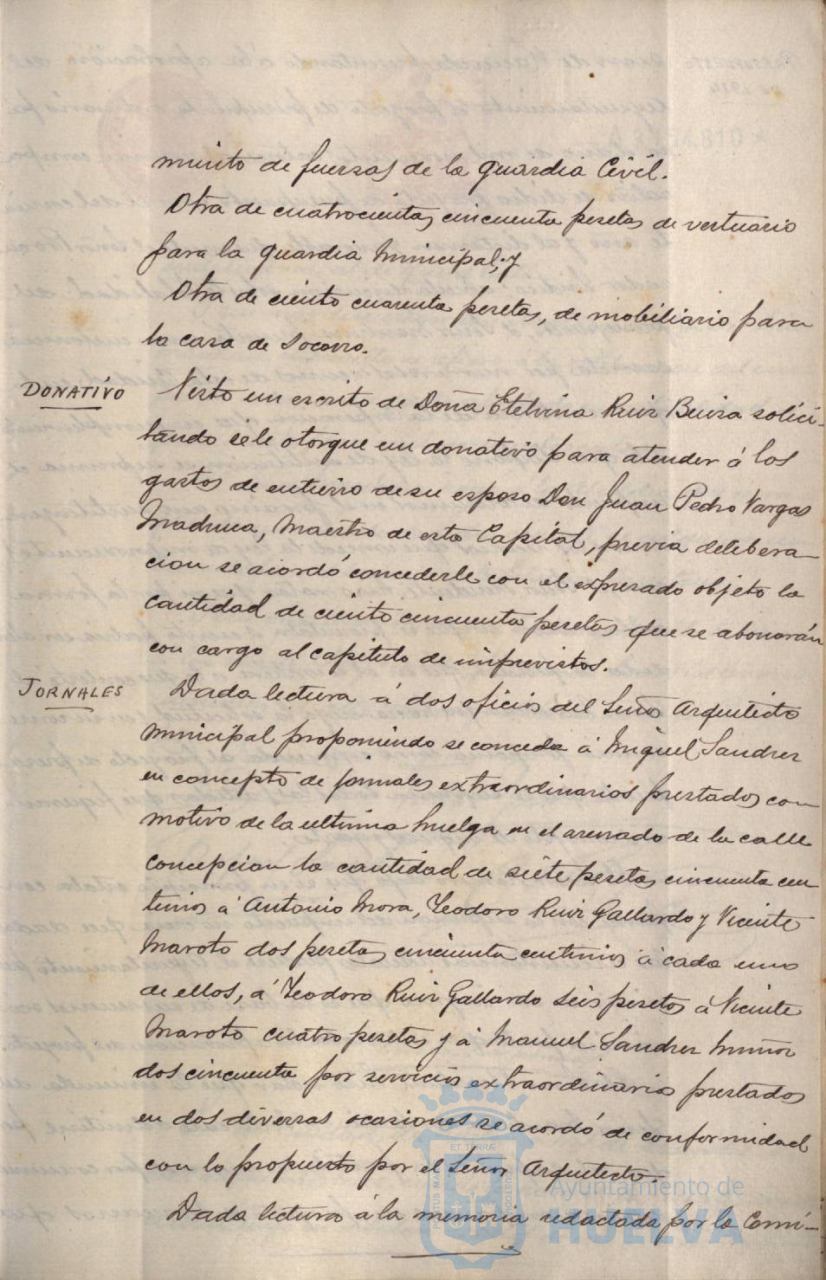 miento de fuerzas de la guardia Civil.
Otra de cuatrocientas cincuenta pesetas de vestuario
para la guardia Municipal; y
Otra de ciento cuarenta pesetas, de mobiliario para
la casa de Socorro.
DONATIVO Visto un escrito de Doña Etelvina Ruiz solici-
tando sele otorgue un donativo para atender á los
gastos de entierro de su esposo Don Juan Pedro Vargas
Maestro de esta Capital, previa delibera
cion se acordó concederle con el expresado objeto la
cantidad de ciento cincuenta pesetas que se abonarán
con cargo al capitulo de imprevistos.
JORNALES Dada lectura á dos oficios del Señor Arquitecto
Municipal proponiendo se conceda á Miguel Sandrez
en concepto de jornales extraordinarios prestados con
motivo de la ultima huelga en el arenado de la calle
Concepcion la cantidad de siete pesetas cincuenta cen
timos á Antonio Mora, Teodoro Ruiz Gallardo y Vicente
Maroto dos pesetas cincuenta centimos á cada uno
de ellos, á Teodoro Ruiz Gallardo seis pesetas á Vicente
Maroto cuatro pesetas y á Manuel Sandrez Muñoz
dos cincuenta por servicios extraordinarios prestados
en dos diversas ocasiones se acordó de conformidad
con lo propuesto por el Señor Arquitecto.
Dada lectura á la memoria redactada por la Comi-
Ayuntamiento de
HUELVA